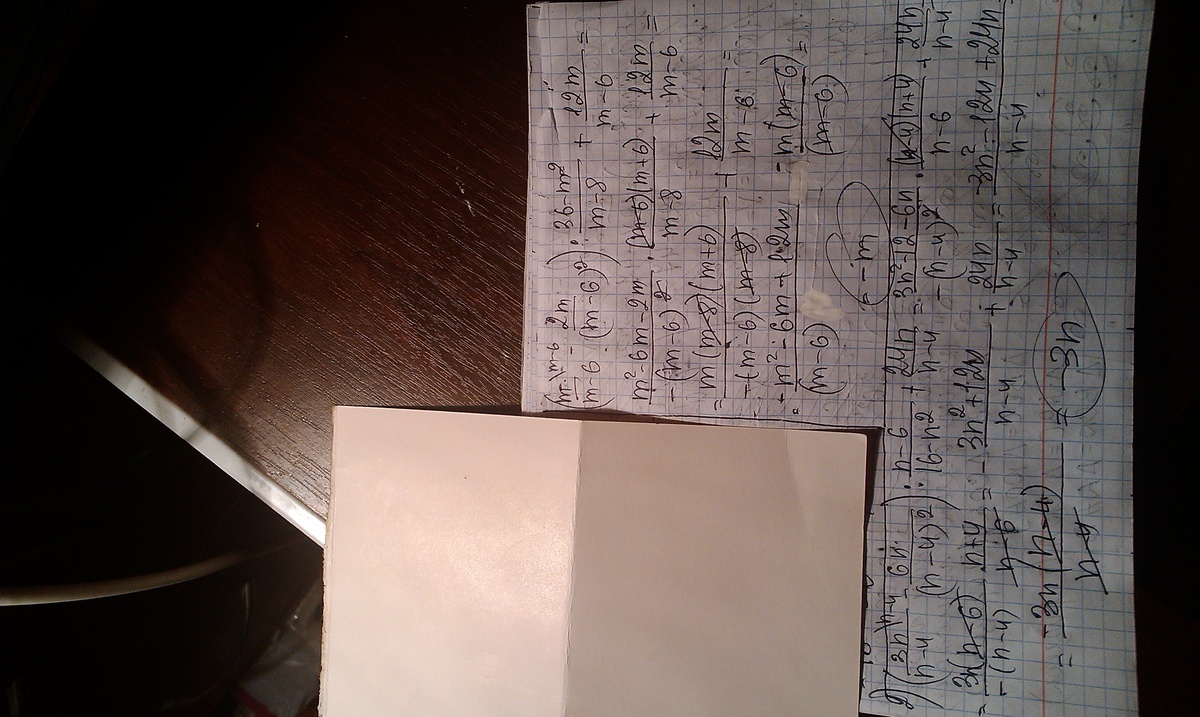 (m\m-6/(m-6) - 2m/(m-6)²) · (36-m²)/(m-8) + 12m/(m-6) =
(m²-6m-2m)/(-(m-6)²) · (m-6)(m+6)/(m-8) + 12m/(m-6) =
= m(m-8)(m+6)/(-(m-6)(m-8)) + 12m/(m-6) =
(-m²-6m+12m)/(m-6) = -m(m-6)/(m-6) =
= -m
2) (3n\n-4/(n-4) - 6n/(n-4)²) : (n-6)/(16-n²) + 24n/(n-4) = (3n²-12-6n)/(-(n-4)²) · (n-4)(n+4)/(n-6) + 24n/(n-4)
= 3n(n-6)/(-(n-4)) · (n+4)/(n-6) = - (3n²+12n)/(n-4) + 24n/(n-4) = (-3n²-12n+24n)/(n-4)
= -3n(n-4)/(n-4) = -3n